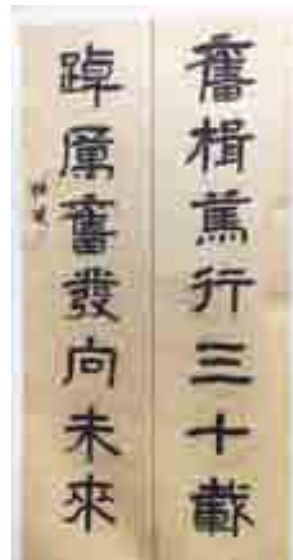 奮楫篤行三十載
踔厲奮發向未來